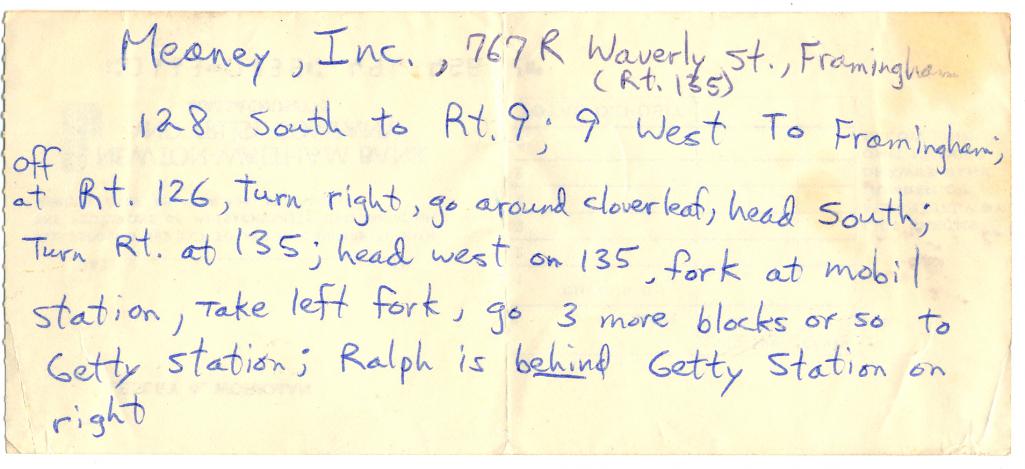 Meaney, Inc., 767 R Waverly St., Framingham
(Rt. 135)
128 South to Rt. 9; 9 West To Framingham;
off
at Rt. 126, Turn right, go around cloverleaf, head South;
Turn Rt. at 135; head west on 135, fork at mobil
station, Take left fork, go 3 more blocks or so to
Getty station; Ralph is behind Getty Station on
right